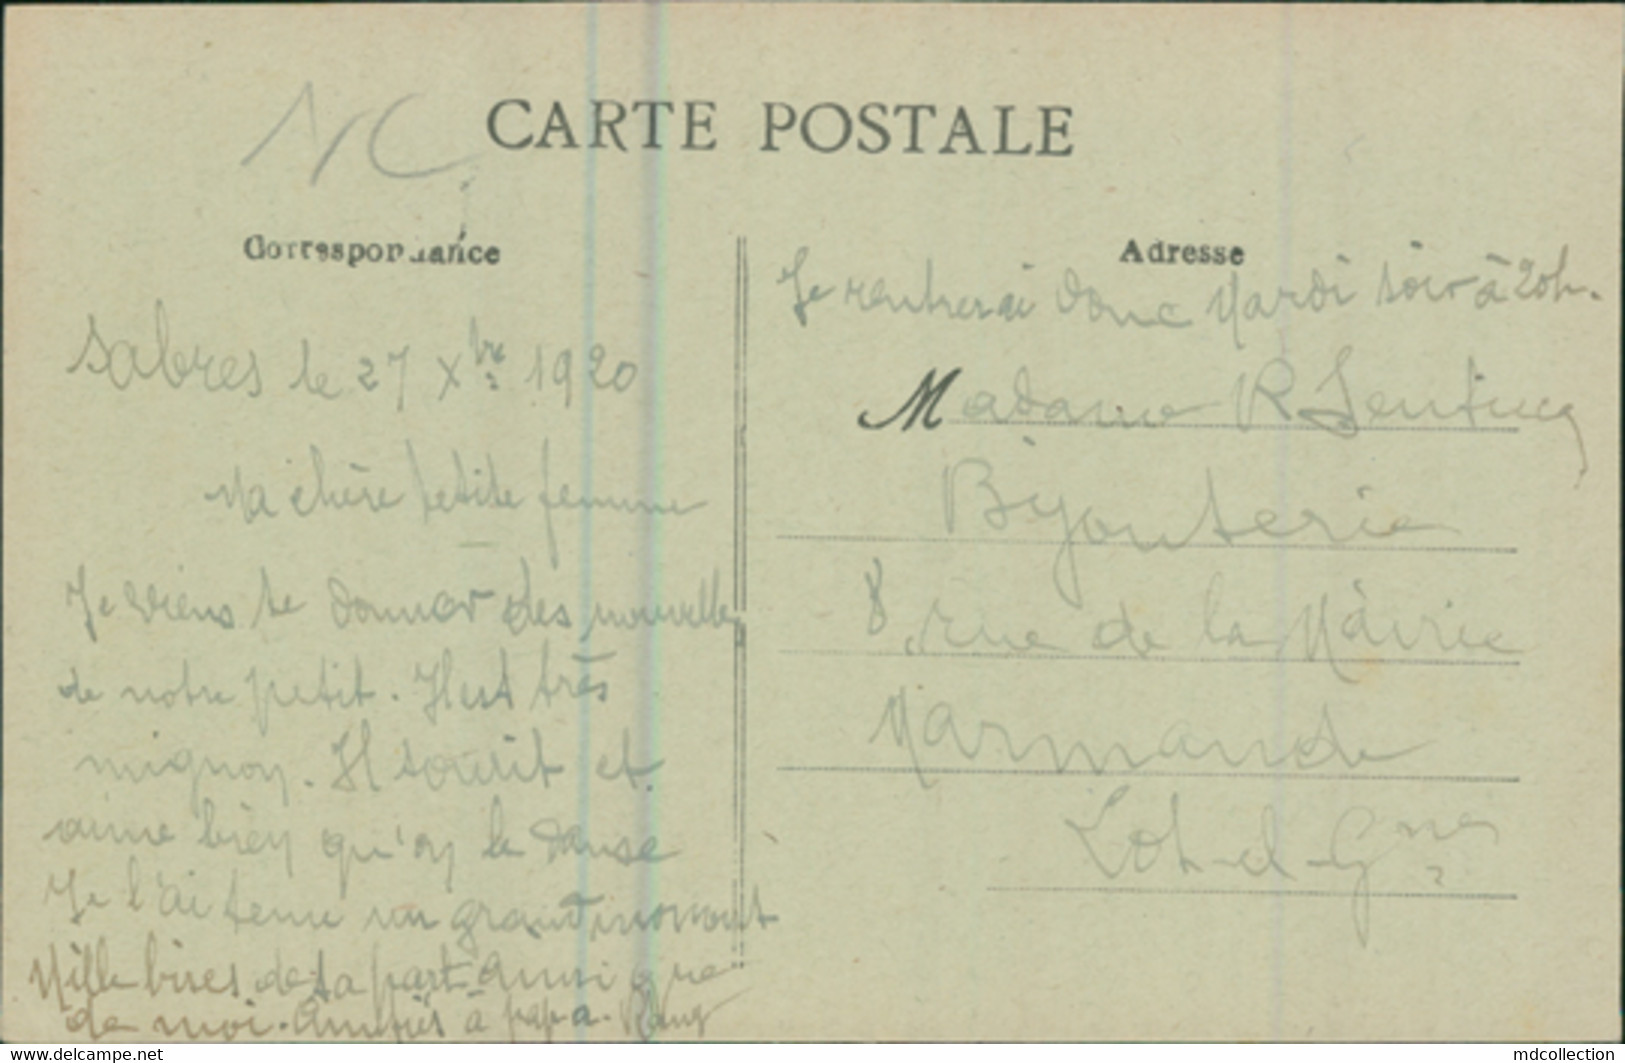 NC
CARTE POSTALE
Correspondance
Sabres le 27 Xbre 1920
Ma chère petite femme
Je viens te donner des nouvelles
de notre petit. Il est très
mignon. Il sourit et
aime bien qu'on le danse
Je l'ai tenu un grand moment
Mille bises de sa part ainsi que
de moi. Amitiés à papa.
Adresse
Je rentrerai donc Mardi soir à 20h.
Madame R
Bijouterie
8, rue de la Mairie
Marmande
Lot-et-Gne
www.delcampe.net
mdcollection